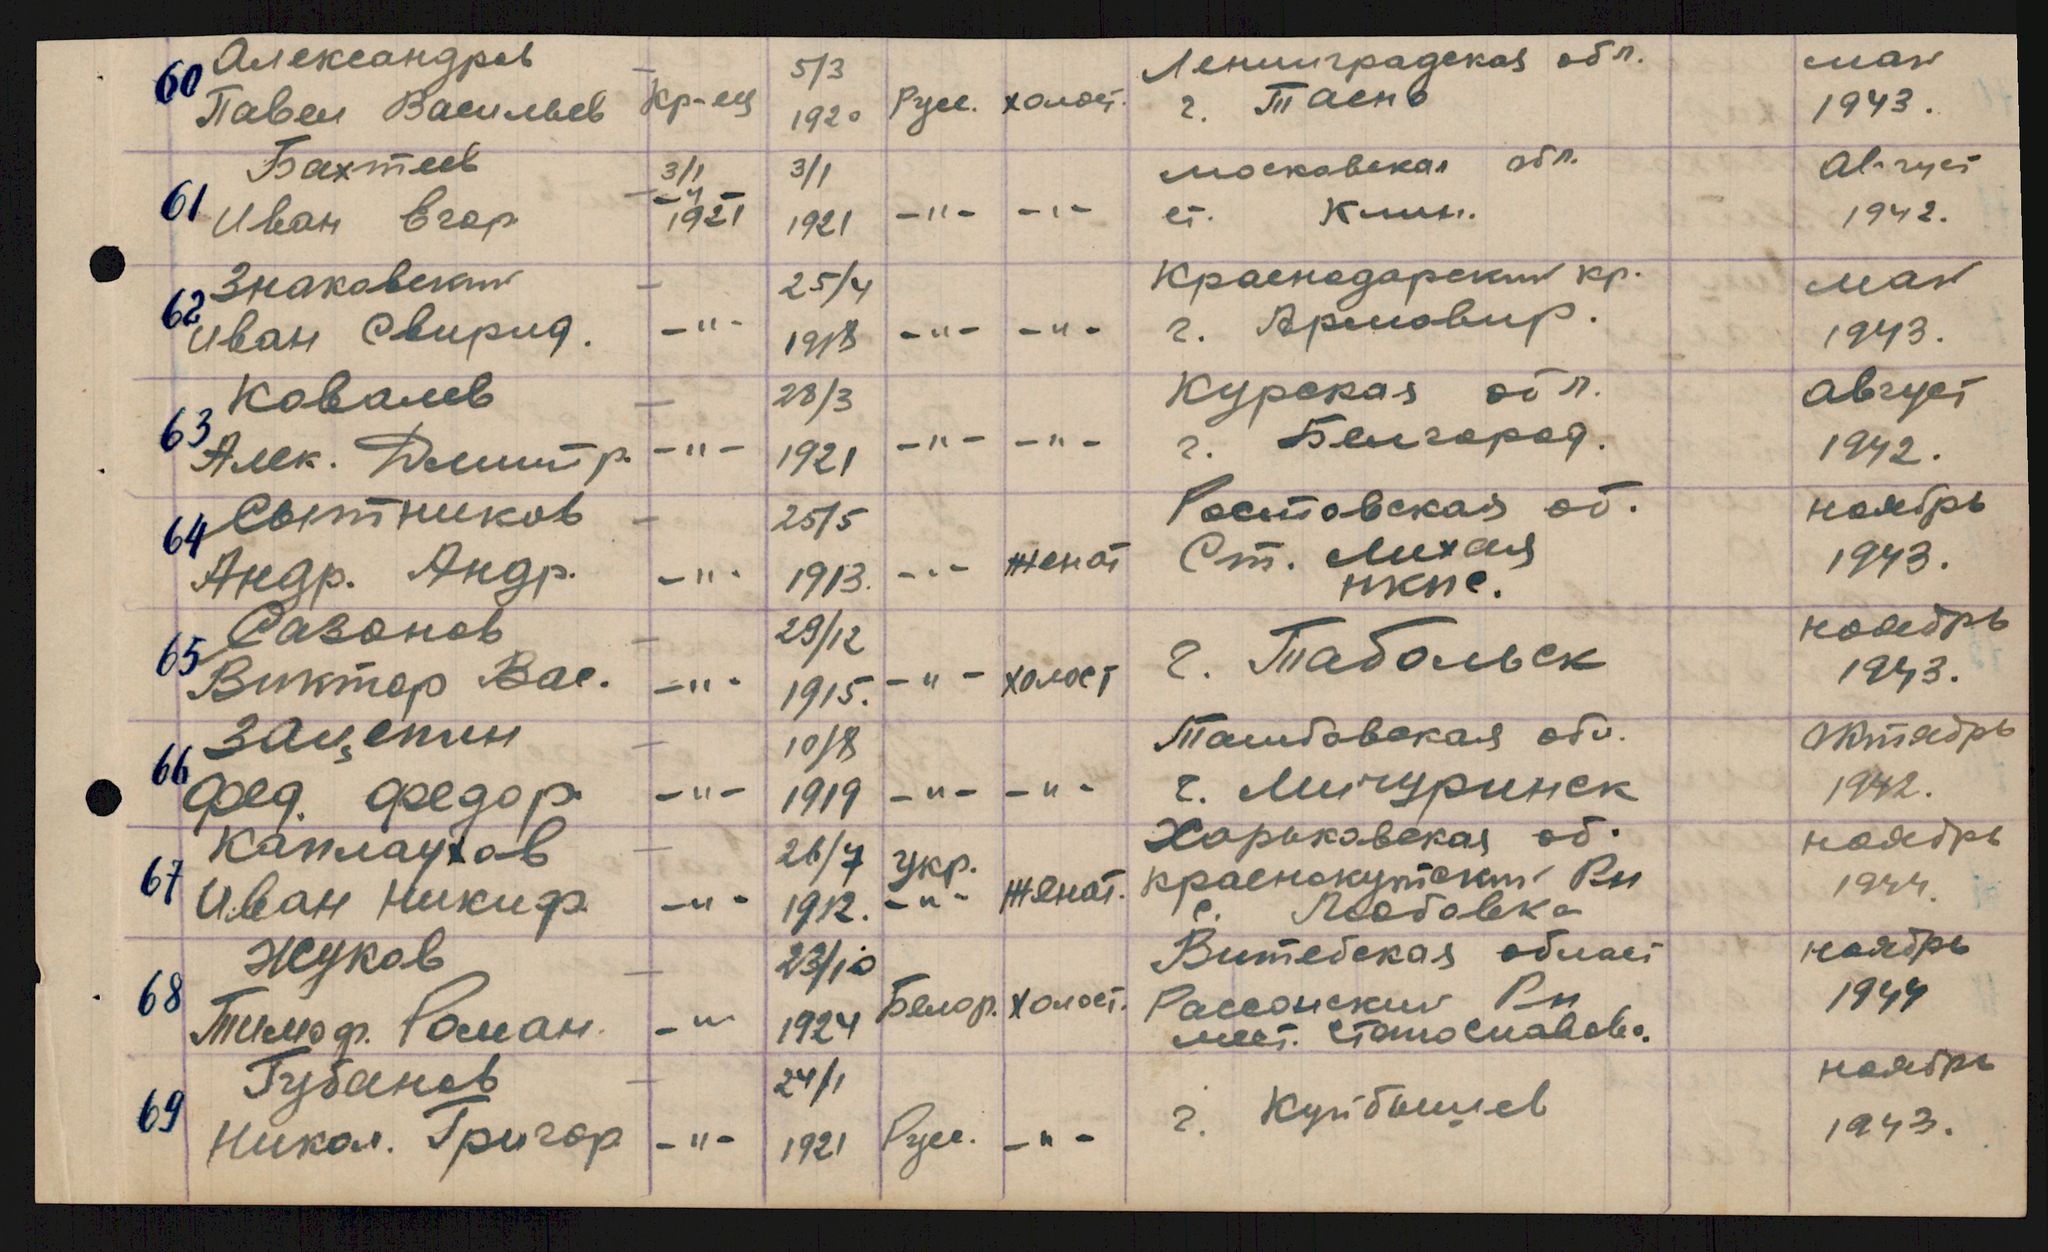 60 Александров — 5/3 Ленинградская обл. май
Павел Васильев кр-ец 1920 Русс. холост. г. Тасно 1943.
61 Бахтеев 3/1 3/1 московская обл. Август
Иван Егор -"- 1921 1921 -"- -"- ст. Клин. 1942.
62 Знаковский — 25/4 Краснодарский кр. май
Иван Свирид. -"- 1918 -"- -"- г. Армовир. 1943.
63 Ковалев — 28/3 Курская обл. август
Алек. Дмитр. -"- 1921 -"- -"- г. Белгород. 1942.
64 Сытников — 25/5 Ростовская об. ноябрь
Андр. Андр. -"- 1913. -"- женат Ст. Лихая 1943.
нкпс.
65 Сазонов — 29/12 ноябрь
Виктор Вас. -"- 1915. -"- холост г. Табольск 1943.
66 Зацепин — 10/8 Тамбовская обл. октябрь
Фед. Федор. -"- 1919 -"- -"- г. Мичуринск 1942.
67 Каплаухов — 26/7 укр. Харьковская об. ноябрь
Иван Никиф. -"- 1912. -"- женат. Краснокутский Рн 1944.
с. Любовка
68 Жуков — 23/10 Витебская област ноябрь
Тимоф. Роман. -"- 1924 Белор. холост. Рассонский Рн 1944
мест.
69 Губанов — 24/1 ноябрь
Никол. Григор -"- 1921 Русс. -"- г. Куйбышев 1943.